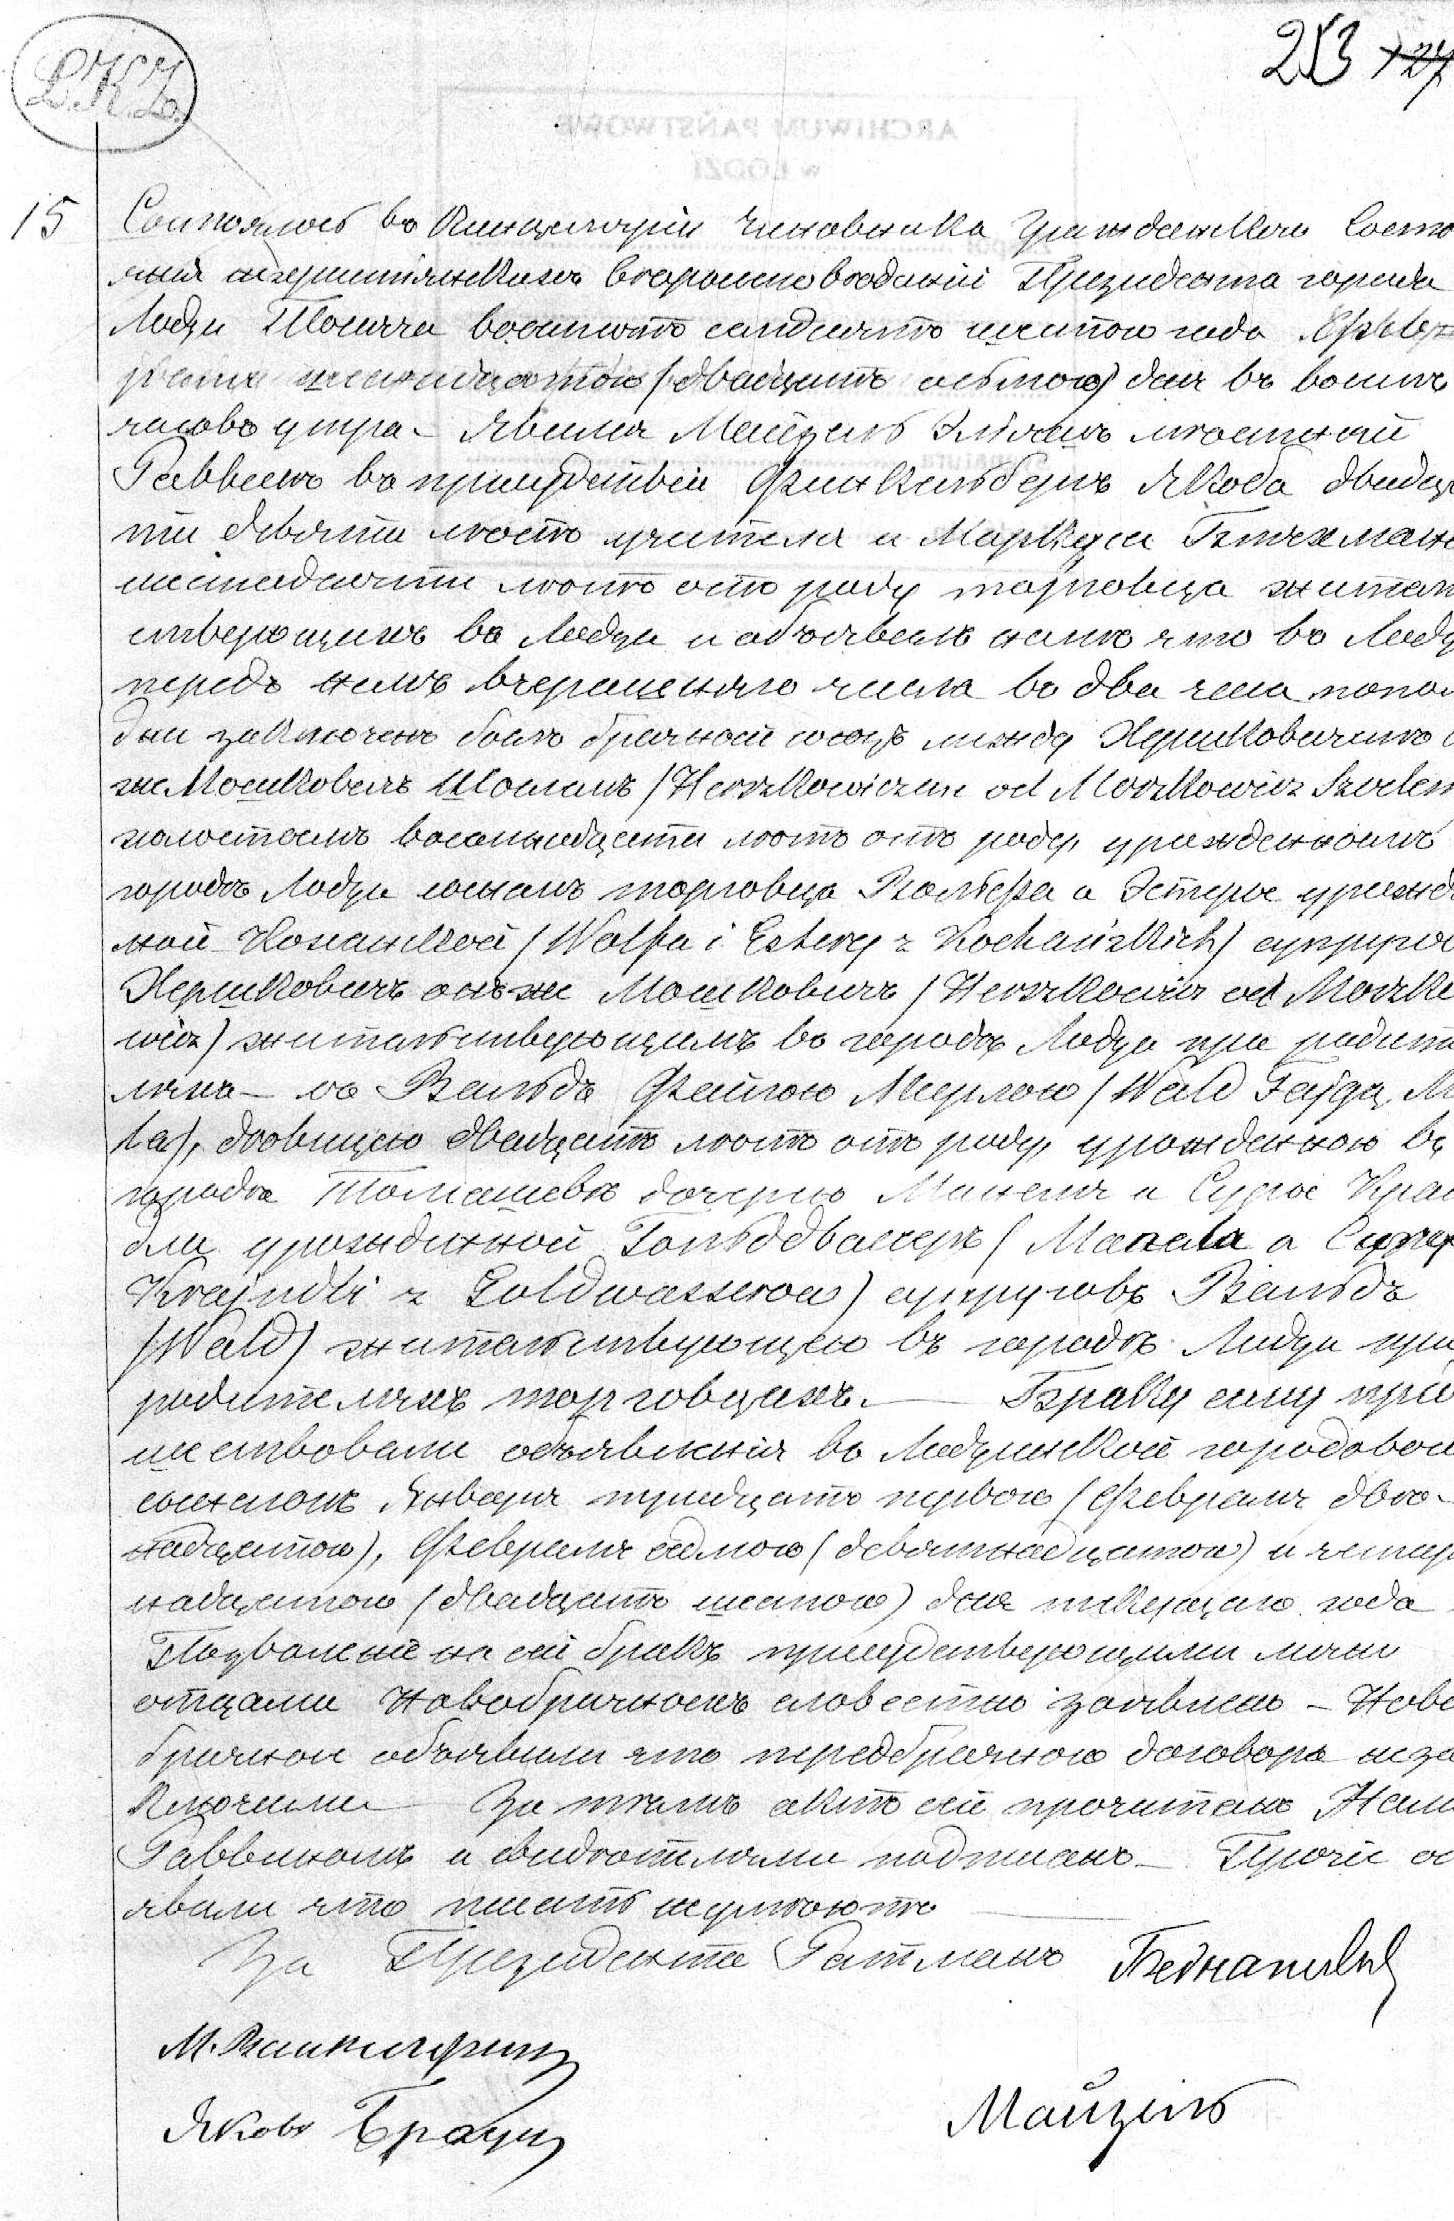 L.K.Z.
253 127
ARCHIWUM PAŃSTWOWE
w ŁODZI
15
Состоялось въ Канцеляріи Чиновника Гражданскаго Состо
янія нехристіянскихъ вѣроисповѣданій Президента города
Лодзи Тысяча восемьсотъ семдесятъ шестого года Февр
раля шеснадцатого (двадцать осьмого) дня въ восемь
часовъ утра – Явился Майзель Эліяшъ мѣстный
Раввинъ въ присудствіи Якоба двадца
ти девяти лѣтъ учителя и Маркуса
шестидесяти лѣтъ отъ роду торговца житель
ствующихъ въ Лодзи и объявилъ намъ что въ Лодзи
передъ нимъ вчерашняго числа въ два часа попол
дни заключенъ былъ брачный союзъ между Хершковичемъ о
же Мошковичъ Шоломъ (Herszkowiczem od Moszkowicz Szolem
холостымъ восемнадцати лѣтъ отъ роду, урожденнымъ
городѣ Лодзи сыномъ торговца Вольфа и Эстеры урожде
нной Коханской (Wolfa i Estery z Kochańskich) супругов
Хершковичъ онъ же Мошковичъ (Herszkowicz od Moszko
wicz) жительствующимъ въ городѣ Лодзи при родите
ляхъ – съ Вальдъ Файгою Мирлою (Wald Fajgą Mi
lą), дѣвицею двадцать лѣтъ отъ роду, урожденною въ
городѣ Томашевѣ дочерью Манеля и Суры Край
дли урожденной Гольддвасеръ (Manela a Сury
Krajndli z Goldwasserow) супруговъ Вальдъ
(Wald) жительствующею въ городѣ Лодзи при
родителяхъ торговцахъ. — Браку сему пред
шествовали объявленія въ Лодзинской городовой
синагогѣ Января тридцать перваго (Февраля двѣ-
надцатого), Февраля седмого (девятнадцатого) и четыр
надцатого (двадцать шестого) дня текущаго года –
Позволеніе на сей бракъ присудствующими лично
отцами Новобрачныхъ словестно заявлено – Ново
брачные объявили что предбрачного договора неза
ключили – За тѣмъ актъ сей прочитанъ Нами
Раввиномъ и свидѣтелями подписанъ – Прочіе об
явили что писать неумѣютъ
За Президента Ратманъ
Яковъ
Майзель